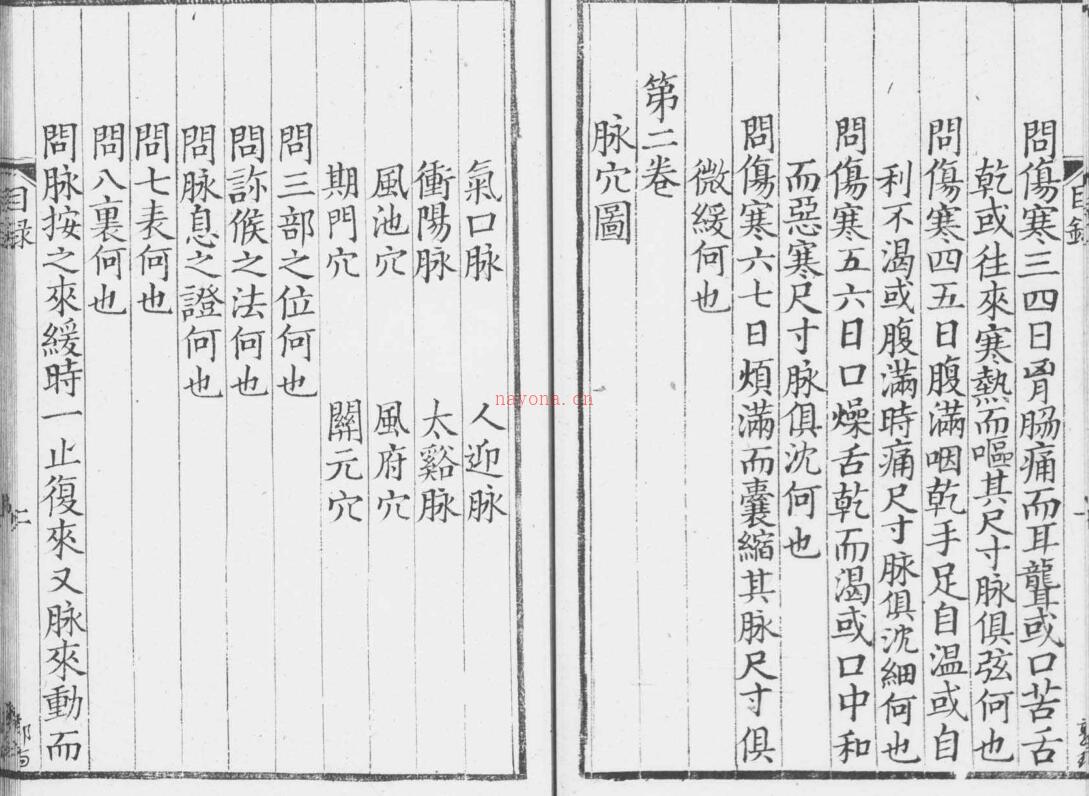 問傷寒三四日胷脇痛而耳聾或口苦舌
乾或往來寒熱而嘔其尺寸脉俱弦何也
問傷寒四五日腹滿咽乾手足自温或自
利不渴或腹滿時痛尺寸脉俱沈細何也
問傷寒五六日口燥舌乾而渴或口中和
而惡寒尺寸脉俱沈何也
問傷寒六七日煩滿而囊縮其脉尺寸俱
微緩何也
第二卷
脉穴圖
氣口脉 人迎脉
衝陽脉 太谿脉
風池穴 風府穴
期門穴 關元穴
問三部之位何也
問診候之法何也
問脉息之證何也
問七表何也
問八裏何也
問脉按之來緩時一止復來又脉來動而
目録
二
目録
nayona.cn